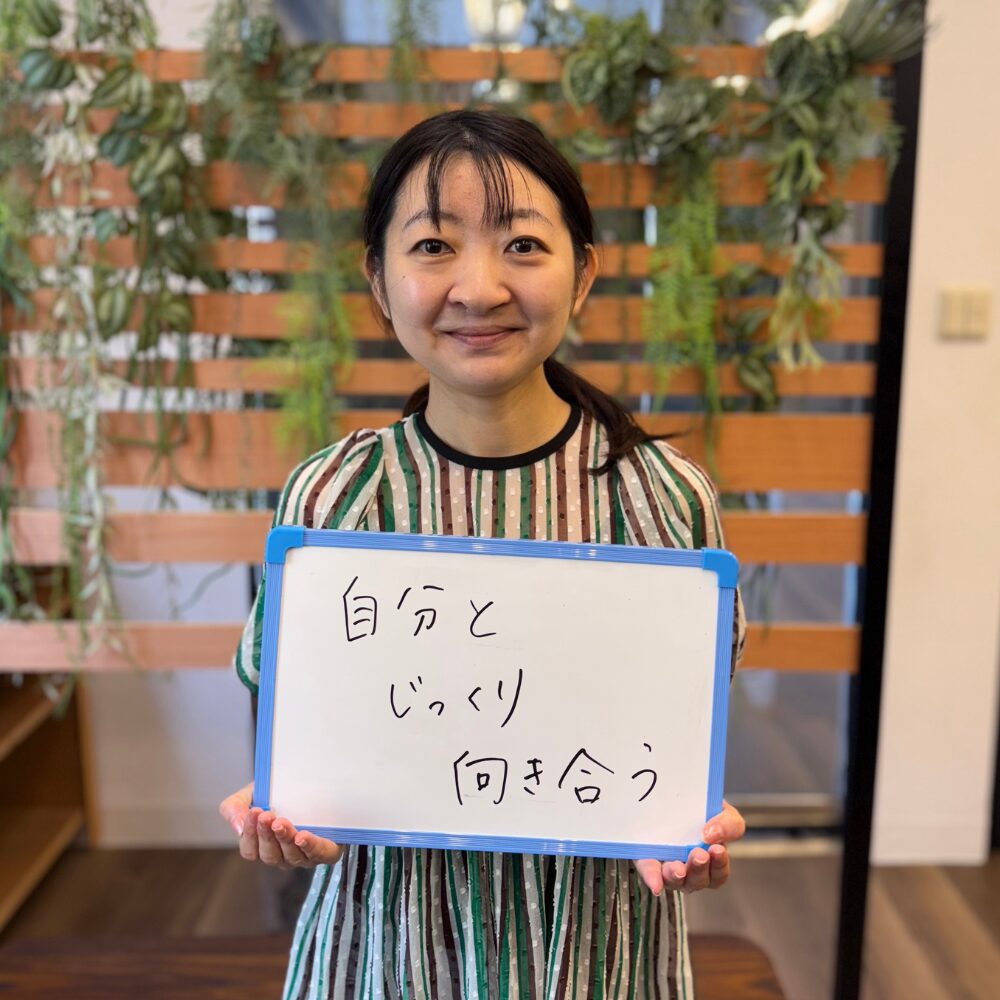 自分と
じっくり
向き合う